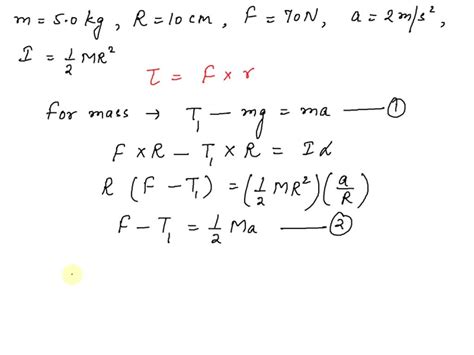 m = 5.0 kg, R = 10 cm, F = 70 N, a = 2 m/s²,
I = 1/2 MR²
τ = F × r
for mass → T₁ − mg = ma —— ①
F × R − T₁ × R = I α
R (F − T₁) = (1/2 MR²) (a/R)
F − T₁ = 1/2 Ma —— ②